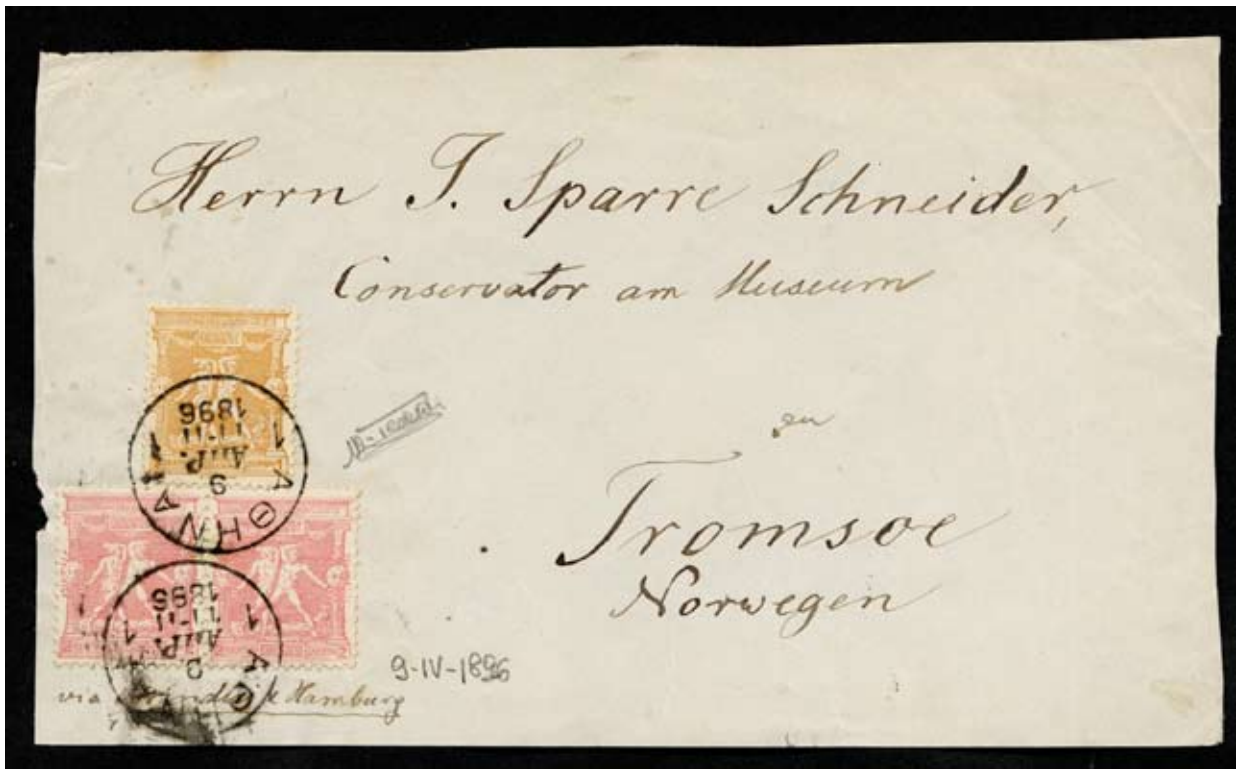 Herrn J. Sparre Schneider,
Conservator am Museum
zu
Tromsoe
Norwegen
1 ΑΘΗΝΑΙ 1
9
ΑΠΡ.
11-11
1896
1 ΑΘ
9
ΑΠΡ.
11-11
1896
9-IV-1896
via Brindisi & Hamburg